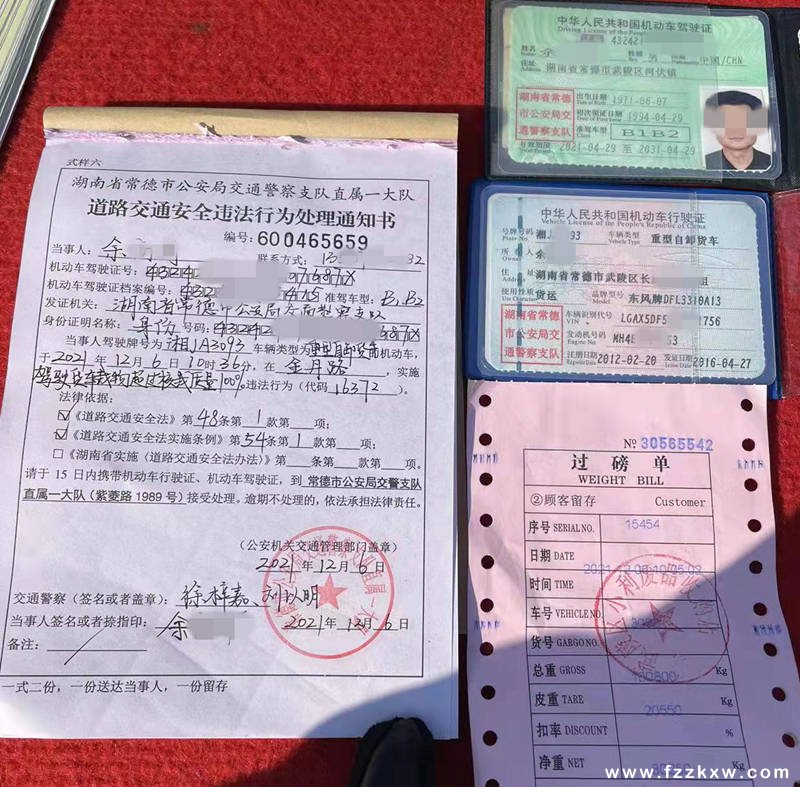 式样六
湖南省常德市公安局交通警察支队直属一大队
道路交通安全违法行为处理通知书
编号:600465659
当事人:余 联系方式:13 32
机动车驾驶证号:432424
机动车驾驶证档案编号:4324 准驾车型:B1.B2
发证机关:湖南省常德市公安局交通警察支队
身份证明名称:身份 号码:432424
当事人驾驶牌号为湘JA3093车辆类型为重型自卸货车机动车,
于2021年12月6日10时36分,在金丹路,实施
驾驶货车载物超过核载质量100%违法行为(代码16372)。
法律依据:
☑《道路交通安全法》第48条第1款第 项;
☑《道路交通安全法实施条例》第54条第1款第 项;
□《湖南省实施〈道路交通安全法办法〉》第 条第 款第 项。
请于 15 日内携带机动车行驶证、机动车驾驶证,到 常德市公安局交警支队
直属一大队(紫菱路 1989 号)接受处理。逾期不处理的,依法承担法律责任。
(公安机关交通管理部门盖章)
2021年12月6日
交通警察(签名或者盖章): 徐梓嘉 刘以明
当事人签名或者捺指印: 余 2021年12月6日
备注:
一式二份,一份送达当事人,一份留存
中华人民共和国机动车驾驶证
Driving License of the People's
432421
姓名 余 性别 男 中国/CHN
住址 湖南省常德市武陵区河洑镇
Address
湖南省常德
市公安局交
通警察支队
出生日期 1971-06-07
Date of Birth
初次领证日期 1994-04-29
Date of First Issue
准驾车型 B1B2
Class
有效期限 2021-04-29 至 2031-04-29
中华人民共和国机动车行驶证
Vehicle License of the People's Republic of China
号牌号码 湘J 93 车辆类型 重型自卸货车
Plate No. Vehicle Type
所有人 余
住址 湖南省常德市武陵区长
Address
使用性质 货运 品牌型号 东风牌DFL3310A13
Use Character Model
湖南省常德
市公安局交
通警察支队
车辆识别代号 LGAX5DF5 1756
VIN
发动机号码 MH4E 53
Engine No.
注册日期 2012-02-20 发证日期 2016-04-27
Register Date Issue Date
№ 30565542
过 磅 单
WEIGHT BILL
②顾客留存 Customer
序号 SERIAL NO. 15454
日期 DATE
时间 TIME
车号 VEHICLE NO.
货号 GARGO NO.
总重 GROSS 100800 Kg
皮重 TARE 20550 Kg
扣率 DISCOUNT %
净重 NET Kg
www.fzzkxw.com